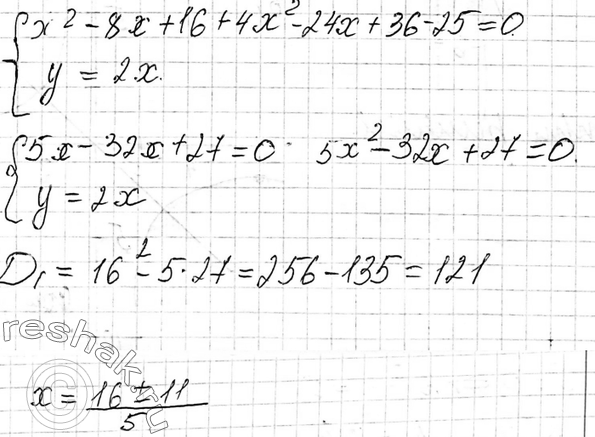 x² - 8x + 16 + 4x² - 24x + 36 - 25 = 0
y = 2x.
5x - 32x + 27 = 0 5x² - 32x + 27 = 0.
y = 2x
D₁ = 16² - 5·27 = 256 - 135 = 121
reshak.ru
©
x = (16 ± 11)/5